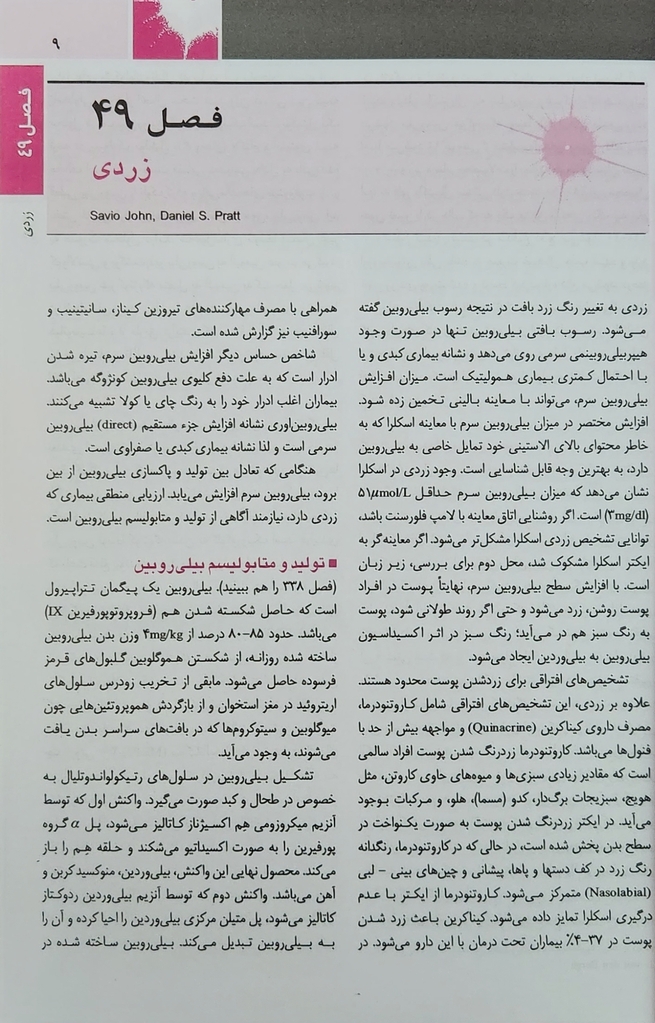 ۹
فصل ۴۹
زردی
فصل ۴۹
زردی
Savio John, Daniel S. Pratt
زردی به تغییر رنگ زرد بافت در نتیجه رسوب بیلی‌روبین گفته
می‌شود. رسوب بافتی بیلی‌روبین تنها در صورت وجود
هیپربیلی‌روبینمی سرمی روی می‌دهد و نشانه بیماری کبدی و یا
با احتمال کمتری بیماری همولیتیک است. میزان افزایش
بیلی‌روبین سرم، می‌تواند با معاینه بالینی تخمین زده شود.
افزایش مختصر در میزان بیلی‌روبین سرم با معاینه اسکلرا که به
خاطر محتوای بالای الاستینی خود تمایل خاصی به بیلی‌روبین
دارد، به بهترین وجه قابل شناسایی است. وجود زردی در اسکلرا
نشان می‌دهد که میزان بیلی‌روبین سرم حداقل ۵۱μmol/L
(۳mg/dl) است. اگر روشنایی اتاق معاینه با لامپ فلورسنت باشد،
توانایی تشخیص زردی اسکلرا مشکل‌تر می‌شود. اگر معاینه‌گر به
ایکتر اسکلرا مشکوک شد، محل دوم برای بررسی، زیر زبان
است. با افزایش سطح بیلی‌روبین سرم، نهایتاً پوست در افراد
پوست روشن، زرد می‌شود و حتی اگر روند طولانی شود، پوست
به رنگ سبز هم در می‌آید؛ رنگ سبز در اثر اکسیداسیون
بیلی‌روبین به بیلی‌وردین ایجاد می‌شود.
تشخیص‌های افتراقی برای زردشدن پوست محدود هستند.
علاوه بر زردی، این تشخیص‌های افتراقی شامل کاروتنودرما،
مصرف داروی کیناکرین (Quinacrine) و مواجهه بیش از حد با
فنول‌ها می‌باشد. کاروتنودرما زردرنگ شدن پوست افراد سالمی
است که مقادیر زیادی سبزی‌ها و میوه‌های حاوی کاروتن، مثل
هویج، سبزیجات برگ‌دار، کدو (مسما)، هلو، و مرکبات بوجود
می‌آید. در ایکتر زردرنگ شدن پوست به صورت یکنواخت در
سطح بدن پخش شده است، در حالی که در کاروتنودرما، رنگدانه
رنگ زرد در کف دستها و پاها، پیشانی و چین‌های بینی - لبی
(Nasolabial) متمرکز می‌شود. کاروتنودرما از ایکتر با عدم
درگیری اسکلرا تمایز داده می‌شود. کیناکرین باعث زرد شدن
پوست در ۳۷-۴٪ بیماران تحت درمان با این دارو می‌شود. در
همراهی با مصرف مهارکننده‌های تیروزین کیناز، سانیتینیب و
سورافنیب نیز گزارش شده است.
شاخص حساس دیگر افزایش بیلی‌روبین سرم، تیره شدن
ادرار است که به علت دفع کلیوی بیلی‌روبین کونژوگه می‌باشد.
بیماران اغلب ادرار خود را به رنگ چای یا کولا تشبیه می‌کنند.
بیلی‌روبین‌اوری نشانه افزایش جزء مستقیم (direct) بیلی‌روبین
سرمی است و لذا نشانه بیماری کبدی یا صفراوی است.
هنگامی که تعادل بین تولید و پاکسازی بیلی‌روبین از بین
برود، بیلی‌روبین سرم افزایش می‌یابد. ارزیابی منطقی بیماری که
زردی دارد، نیازمند آگاهی از تولید و متابولیسم بیلی‌روبین است.
■ تولید و متابولیسم بیلی‌روبین
(فصل ۳۳۸ را هم ببینید). بیلی‌روبین یک پیگمان تتراپیرول
است که حاصل شکسته شدن هم (فروپروتوپورفیرین IX)
می‌باشد. حدود ۸۵-۸۰ درصد از ۴mg/kg وزن بدن بیلی‌روبین
ساخته شده روزانه، از شکستن هموگلوبین گلبول‌های قرمز
فرسوده حاصل می‌شود. مابقی از تخریب زودرس سلول‌های
اریتروئید در مغز استخوان و از بازگردش هموپروتئین‌هایی چون
میوگلوبین و سیتوکروم‌ها که در بافت‌های سراسر بدن یافت
می‌شوند، به وجود می‌آید.
تشکیل بیلی‌روبین در سلول‌های رتیکولواندوتلیال به
خصوص در طحال و کبد صورت می‌گیرد. واکنش اول که توسط
آنزیم میکروزومی هِم اکسیژناز کاتالیز می‌شود، پل α گروه
پورفیرین را به صورت اکسیداتیو می‌شکند و حلقه هِم را باز
می‌کند. محصول نهایی این واکنش، بیلی‌وردین، منوکسیدکربن و
آهن می‌باشد. واکنش دوم که توسط آنزیم بیلی‌وردین ردوکتاز
کاتالیز می‌شود، پل متیلن مرکزی بیلی‌وردین را احیا کرده و آن را
به بیلی‌روبین تبدیل می‌کند. بیلی‌روبین ساخته شده در